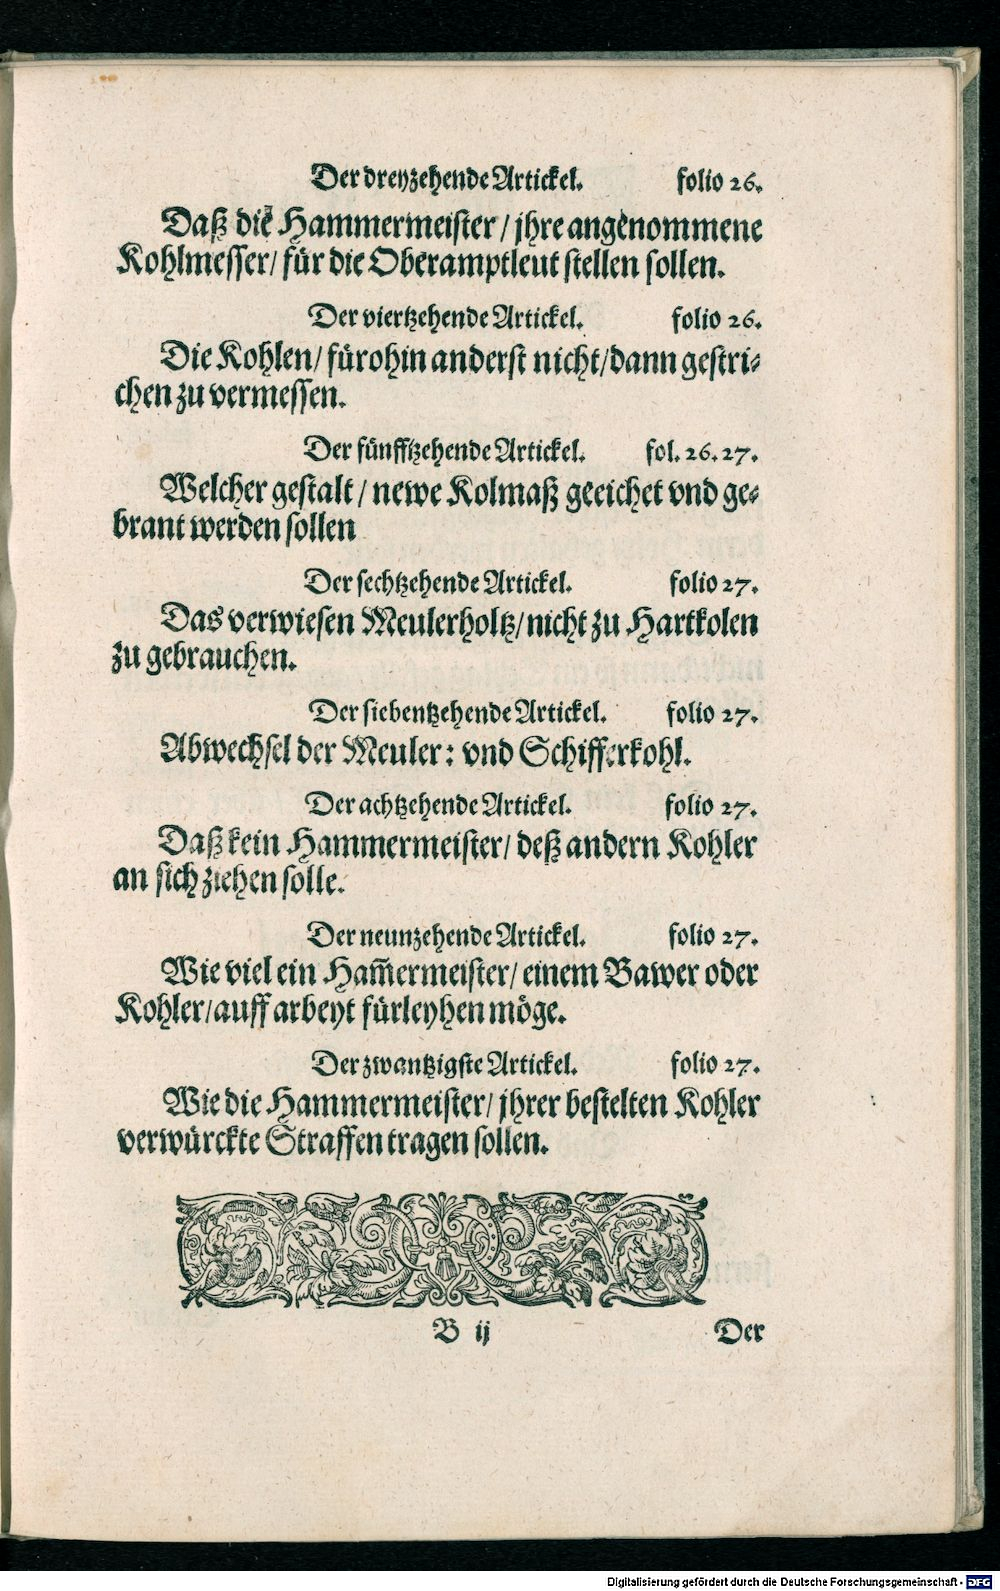 Der dreyzehende Artickel. folio 26.
Daß die Hammermeister / jhre angenommene
Kohlmesser / für die Oberamptleut stellen sollen.
Der viertzehende Artickel. folio 26.
Die Kohlen / fürohin anderst nicht / dann gestri-
chen zu vermessen.
Der fünfftzehende Artickel. fol. 26. 27.
Welcher gestalt / newe Kolmaß geeichet vnd ge-
brant werden sollen
Der sechtzehende Artickel. folio 27.
Das verwiesen Meulerholtz / nicht zu Hartkolen
zu gebrauchen.
Der siebentzehende Artickel. folio 27.
Abwechsel der Meuler: vnd Schifferkohl.
Der achtzehende Artickel. folio 27.
Daß kein Hammermeister / deß andern Kohler
an sich ziehen solle.
Der neunzehende Artickel. folio 27.
Wie viel ein Ham̃ermeister / einem Bawer oder
Kohler / auff arbeyt fürleyhen möge.
Der zwantzigste Artickel. folio 27.
Wie die Hammermeister / jhrer bestelten Kohler
verwürckte Straffen tragen sollen.
B ij Der
Digitalisierung gefördert durch die Deutsche Forschungsgemeinschaft - DFG